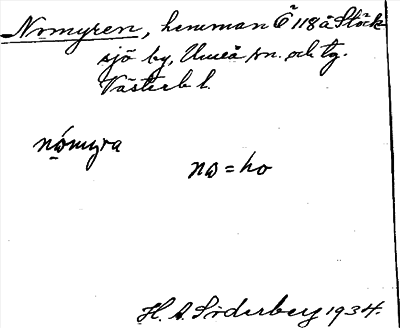 Nomyren, hemman Ö 118 å Stöck-
sjö by, Umeå sn. och tg.
Västerb l.
nómyra
no = ho
H. A. Söderberg 1934.